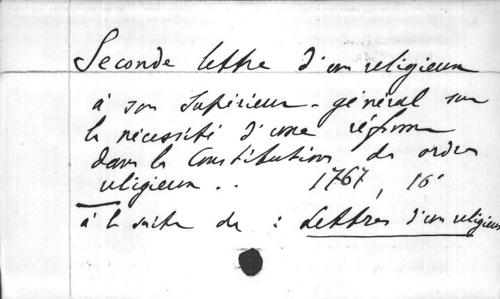 Seconde lettre d'un religieux
à son supérieur-général sur
la nécessité d'une réforme
dans la Constitution des ordres
religieux .. 1767, 16°
à la suite de : Lettres d'un religieux